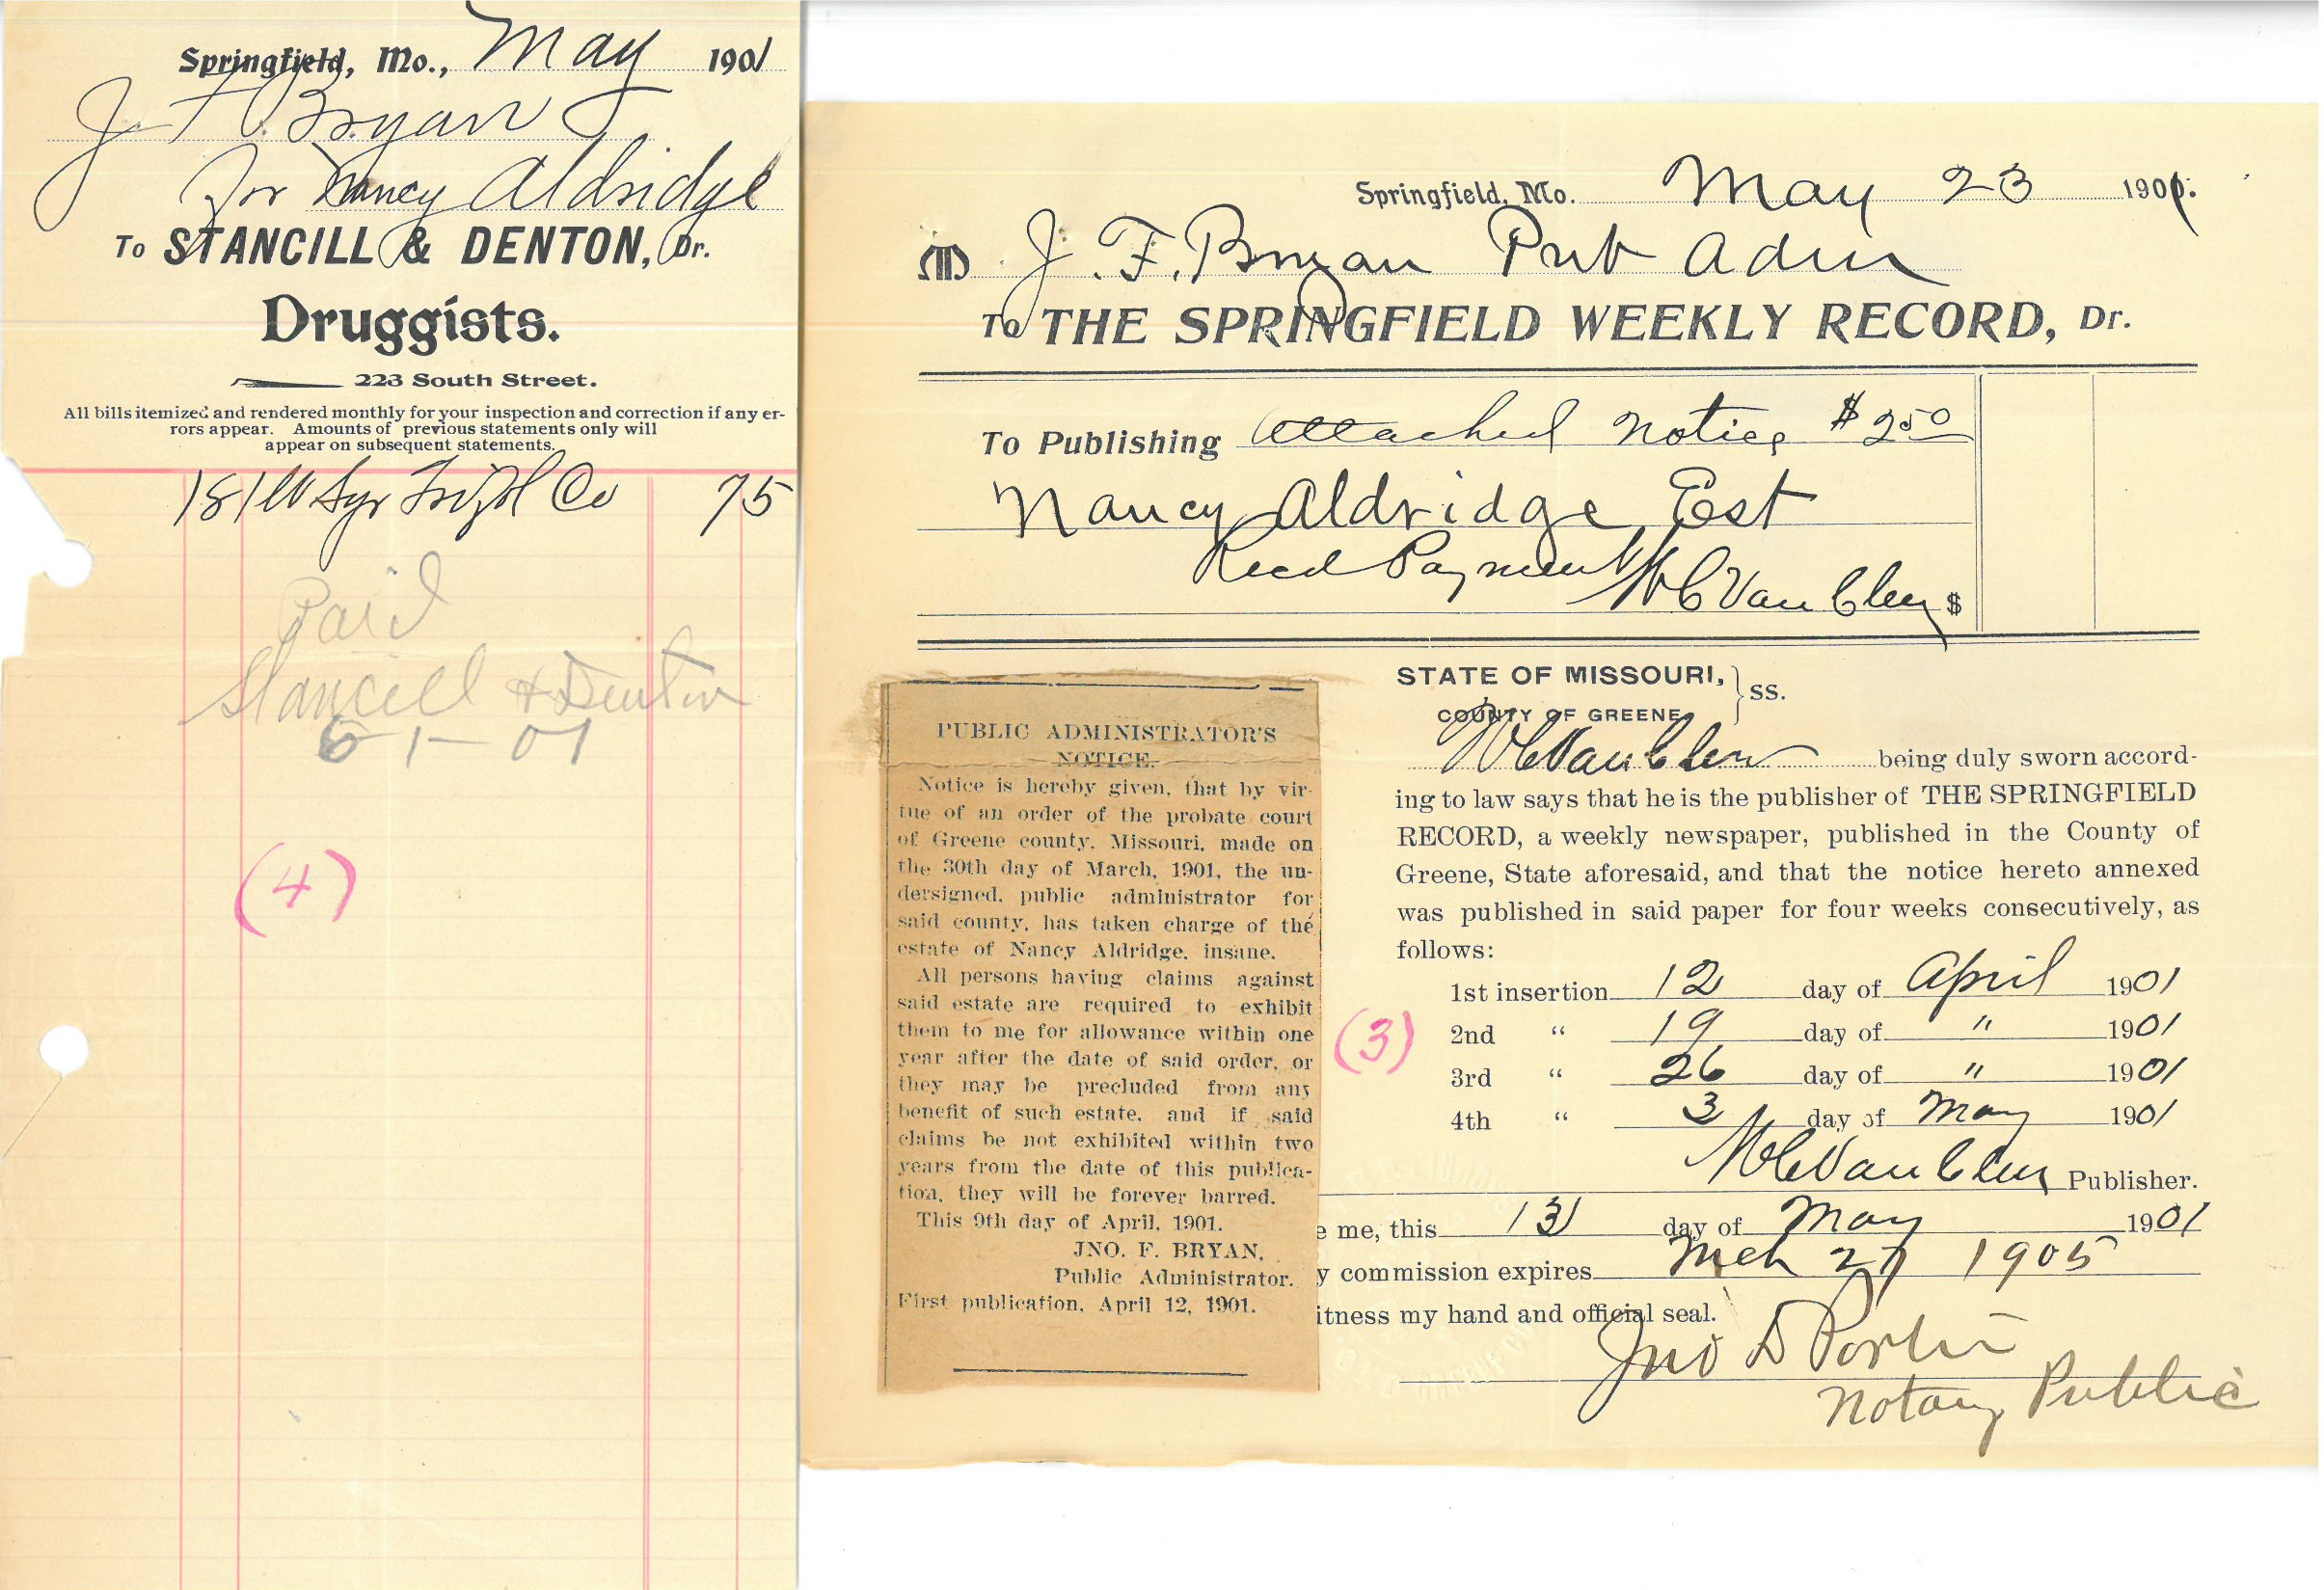 Springfield, Mo., May 1901
J F Bryan
for Nancy Aldridge
To STANCILL & DENTON, Dr.
Druggists.
223 South Street.
All bills itemized and rendered monthly for your inspection and correction if any er-
rors appear. Amounts of previous statements only will
appear on subsequent statements.
18 Syr Co 75
Paid
Stancill & Denton
6-1-01
(4)
Springfield, Mo. May 23 1901.
M J. F. Bryan Pub Adm
To THE SPRINGFIELD WEEKLY RECORD, Dr.
To Publishing attached notice $2.50
Nancy Aldridge Est
Recd Payment W C Van Cleve $
PUBLIC ADMINISTRATOR'S
NOTICE.
Notice is hereby given, that by vir-
tue of an order of the probate court
of Greene county, Missouri, made on
the 30th day of March, 1901, the un-
dersigned, public administrator for
said county, has taken charge of the
estate of Nancy Aldridge, insane.
All persons having claims against
said estate are required to exhibit
them to me for allowance within one
year after the date of said order, or
they may be precluded from any
benefit of such estate, and if said
claims be not exhibited within two
years from the date of this publica-
tion, they will be forever barred.
This 9th day of April, 1901.
JNO. F. BRYAN,
Public Administrator.
First publication, April 12, 1901.
STATE OF MISSOURI, } SS.
COUNTY OF GREENE
W C Van Cleve being duly sworn accord-
ing to law says that he is the publisher of THE SPRINGFIELD
RECORD, a weekly newspaper, published in the County of
Greene, State aforesaid, and that the notice hereto annexed
was published in said paper for four weeks consecutively, as
follows:
1st insertion 12 day of April 1901
(3)
2nd " 19 day of " 1901
3rd " 26 day of " 1901
4th " 3 day of May 1901
W C Van Cleve Publisher.
e me, this 13 day of May 1901
y commission expires Mch 27 1905
itness my hand and official seal.
Jno D Porter
Notary Public